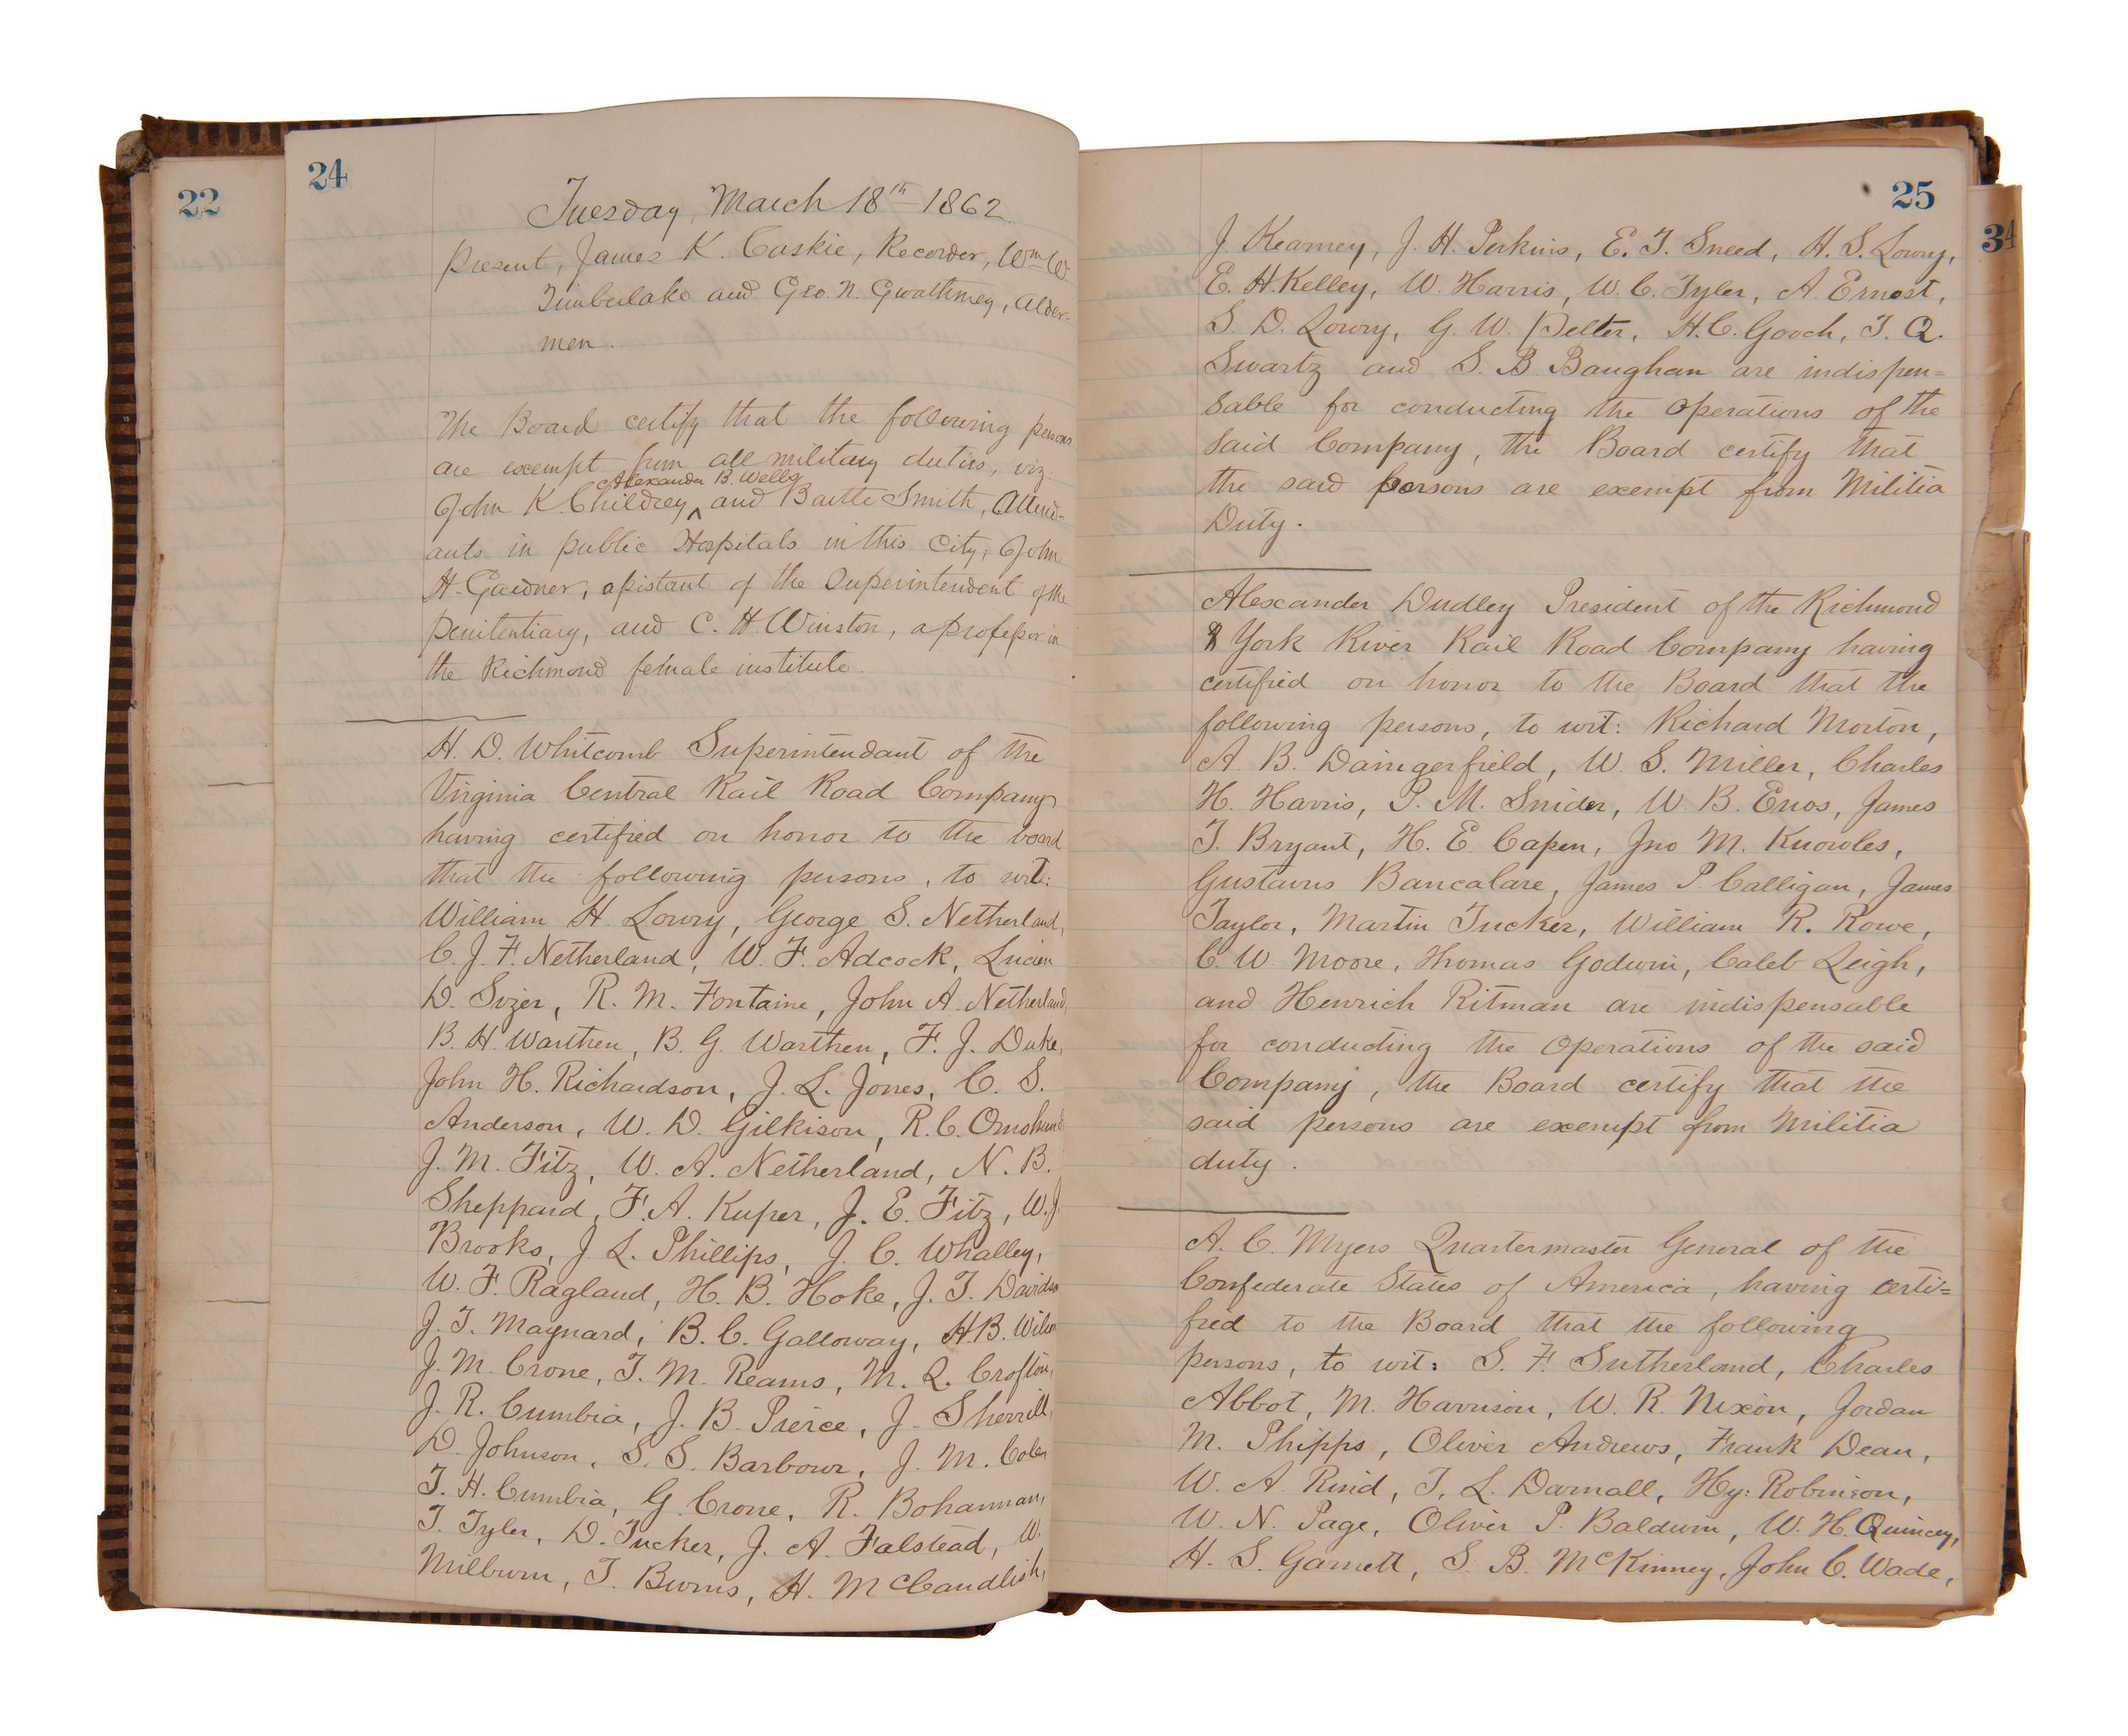 22
24
Tuesday, March 18th 1862.
Present, James K. Caskie, Recorder, Wm W.
Timberlake and Geo. N. Gwathmey, Alder-
men.
The Board certify that the following persons
are exempt from all military duties, viz:
Alexander B. Wells
John K. Childrey ^ and Bartte Smith, Attend-
ants in public Hospitals in this City; John
H. Gardner, assistant of the Superintendent of the
penitentiary, and C. H. Winston, a professor in
the Richmond female institute.
H. D. Whitcomb Superintendant of the
Virginia Central Rail Road Company
having certified on honor to the board
that the following persons, to wit:
William H. Lowry, George S. Netherland,
C. J. F. Netherland, W. F. Adcock, Lucien
D. Sizer, R. M. Fontaine, John A. Netherland,
B. H. Warthen, B. G. Warthen, F. J. Duke,
John H. Richardson, J. L. Jones, C. S.
Anderson, W. D. Gilkison, R. C. Omohund
J. M. Fitz, W. A. Netherland, N. B.
Sheppard, F. A. Kuper, J. E. Fitz, W. J.
Brooks, J. L. Phillips, J. C. Whalley,
W. F. Ragland, H. B. Hoke, J. T. Davidson
J. T. Maynard, B. C. Galloway, H. B. Wilson
J. M. Crone, T. M. Reams, M. Q. Crofton,
J. R. Cumbia, J. B. Pierce, J. Sherrill,
D. Johnson, S. S. Barbour, J. M. Coley
T. H. Cumbia, G. Crone, R. Bohannan,
T. Tyler, D. Tucker, J. A. Falstead, W.
Milburn, T. Burns, H. McCandlish,
25
34
J. Kearney, J. H. Perkins, E. T. Sneed, H. S. Lowry,
E. H. Kelley, W. Harris, W. C. Tyler, A. Ernest,
S. D. Lowry, G. W. Pelter, H. C. Gooch, T. Q.
Swartz and S. B. Baughan are indispen=
sable for conducting the operations of the
said Company, the Board certify that
the said persons are exempt from Militia
Duty.
Alexander Dudley President of the Richmond
& York River Rail Road Company having
certified on honor to the Board that the
following persons, to wit: Richard Morton,
A. B. Daingerfield, W. S. Miller, Charles
H. Harris, P. M. Snider, W. B. Enos, James
T. Bryant, H. E. Capen, Jno M. Knowles,
Gustavus Bancalare, James P. Calligan, James
Taylor, Martin Tucker, William R. Rowe,
C. W. Moore, Thomas Godwin, Caleb Leigh,
and Henrich Ritman are indispensable
for conducting the Operations of the said
Company, the Board certify that the
said persons are exempt from Militia
duty.
A. C. Myers Quartermaster General of the
Confederate States of America, having certi=
fied to the Board that the following
persons, to wit: S. F. Sutherland, Charles
Abbot, M. Harrison, W. R. Nixon, Jordan
M. Phipps, Oliver Andrews, Frank Dean,
W. A. Rind, T. L. Darnall, Hy: Robinson,
W. N. Page, Oliver P. Baldwin, W. H. Quincey,
H. S. Garnett, S. B. McKinney, John C. Wade,